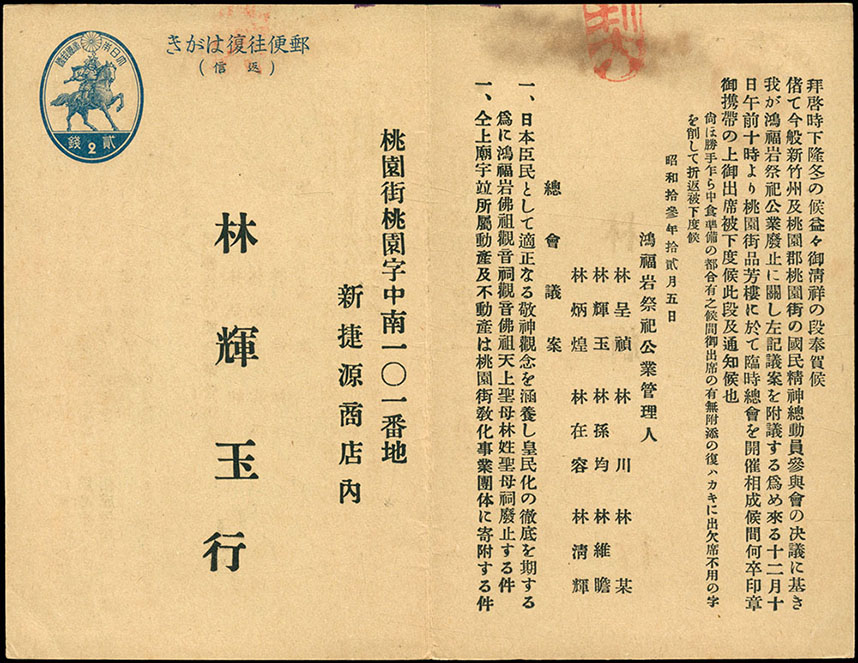 拜啓時下隆冬の候益々御淸祥の段奉賀候
偖て今般新竹州及桃園郡桃園街の國民精神總動員參與會の决議に基き
我が鴻福岩祭祀公業廢止に關し左記議案を附議する爲め來る十二月十
日午前十時より桃園街品芳樓に於て臨時總會を開催相成候間何卒印章
御携帶の上御出席被下度候此段及通知候也
尙ほ勝手乍ら中食準備の都合有之候間御出席の有無附添の復ハカキに出欠席不用の字
を削して折返被下度候
昭和拾參年拾貳月五日
鴻福岩祭祀公業管理人
林呈禎 林川 林某
林輝玉 林孫均 林維瞻
林炳煌 林在容 林淸輝
總會議案
一、日本臣民として適正なる敬神觀念を涵養し皇民化の徹底を期する
爲に鴻福岩佛祖觀音祠觀音佛祖天上聖母林姓聖母祠廢止する件
一、仝上廟宇竝所屬動產及不動產は桃園街敎化事業團体に寄附する件
郵便往復はがき
(返信)
大日本帝國郵便
貳2錢
桃園街桃園字中南一〇一番地
新捷源商店內
林輝玉行